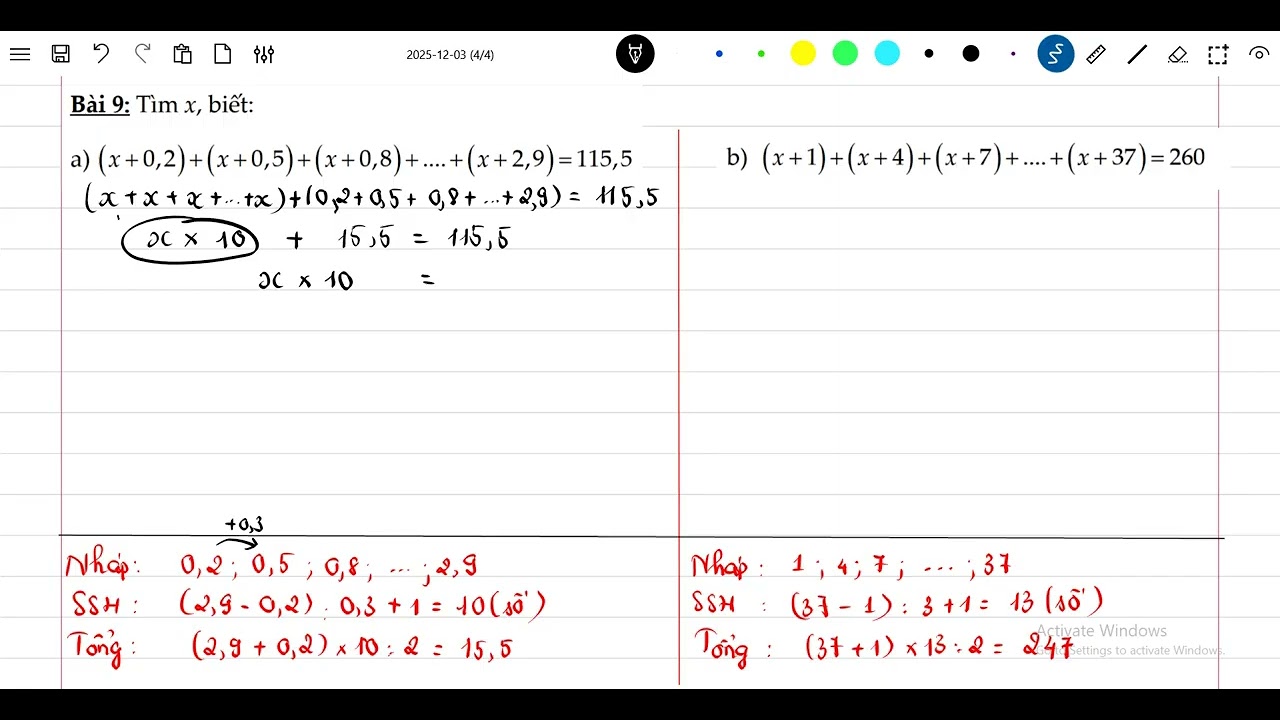 2025-12-03 (4/4)
Bài 9: Tìm x, biết:
a) (x+0,2)+(x+0,5)+(x+0,8)+....+(x+2,9)=115,5
(x + x + x + ... +x) + (0,2+0,5+ 0,8+ ...+ 2,9) = 115,5
x × 10 + 15,5 = 115,5
x × 10 =
+0,3
Nháp: 0,2 ; 0,5 ; 0,8 ; ... ; 2,9
SSH : (2,9 - 0,2) : 0,3 + 1 = 10 (số)
Tổng : (2,9 + 0,2) × 10 : 2 = 15,5
b) (x+1)+(x+4)+(x+7)+....+(x+37)=260
Nháp : 1 ; 4 ; 7 ; ... ; 37
SSH : (37 - 1) : 3 + 1 = 13 (số)
Tổng : (37 + 1) × 13 : 2 = 247
Activate Windows
Go to Settings to activate Windows.